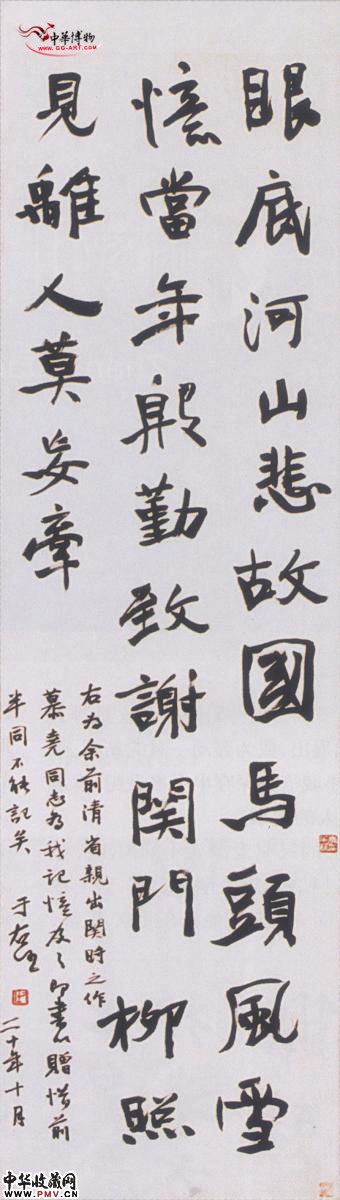 中華博物
www.GG-ART.com
眼底河山悲故國馬頭風雪
憶當年殷勤致謝関門柳照
見離人莫妄牽
右为余前清省親出関時之作
慕堯同志为我記憶及之即書以贈惜前
半同不能記矣 于右任
二十年十月
中华收藏网
WWW.PMV.CN